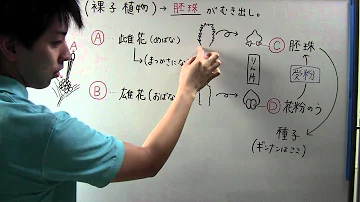 (裸子植物)→胚珠がむき出し。
A 雌花(めばな)
→(まつかさにな
B 雄花(おばな
りん片
C 胚珠
受粉
D 花粉のう
種子
(ギンナンはここ)
A